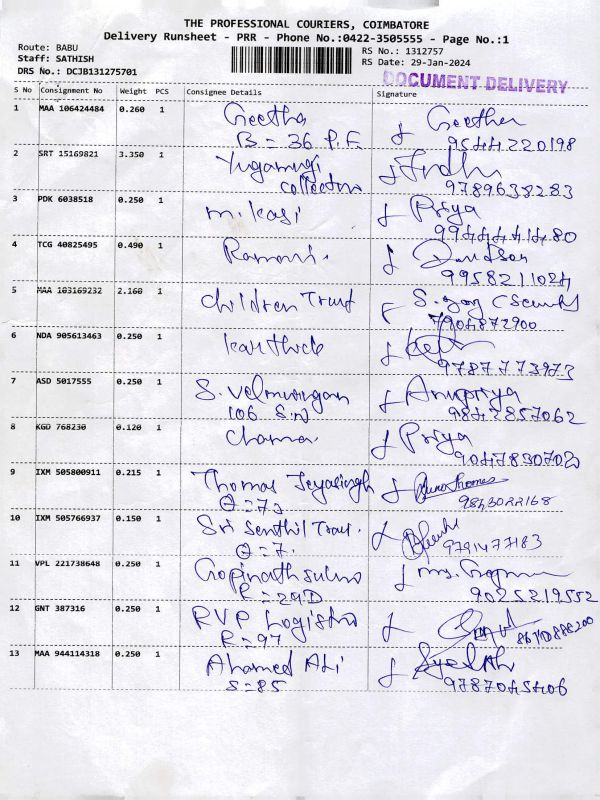 THE PROFESSIONAL COURIERS, COIMBATORE
Delivery Runsheet - PRR - Phone No.:0422-3505555 - Page No.:1
Route: BABU
Staff: SATHISH
DRS No.: DCJB131275701
RS No.: 1312757
RS Date: 29-Jan-2024
DOCUMENT DELIVERY
S No Consignment No Weight PCS Consignee Details Signature
1 MAA 106424484 0.260 1 Geetha Geetha
B = 36 P.F 9544220198
2 SRT 15169821 3.350 1
collection 9789638283
3 PDK 6038518 0.250 1 m. kasi Priya
9944414480
4 TCG 40825495 0.490 1 Ramani.
9958211024
5 MAA 103169232 2.160 1 Children Trust
7904872900
6 NDA 905613463 0.250 1 karthick
9787773973
7 ASD 5017555 0.250 1 S. Velmurugan Anupriya
106 S.N 9842857062
8 KGD 768230 0.120 1 Priya
9047830702
9 IXM 505800911 0.215 1 Thomas Jeyasingh
9843022168
10 IXM 505766937 0.150 1 Sri Senthil Trav.
9791477183
11 VPL 221738648 0.250 1 Gopinath Mrs.
R = 29D 9025219552
12 GNT 387316 0.250 1 RVP Logistics
R = 97
13 MAA 944114318 0.250 1 Ahamed Ali
S = 85